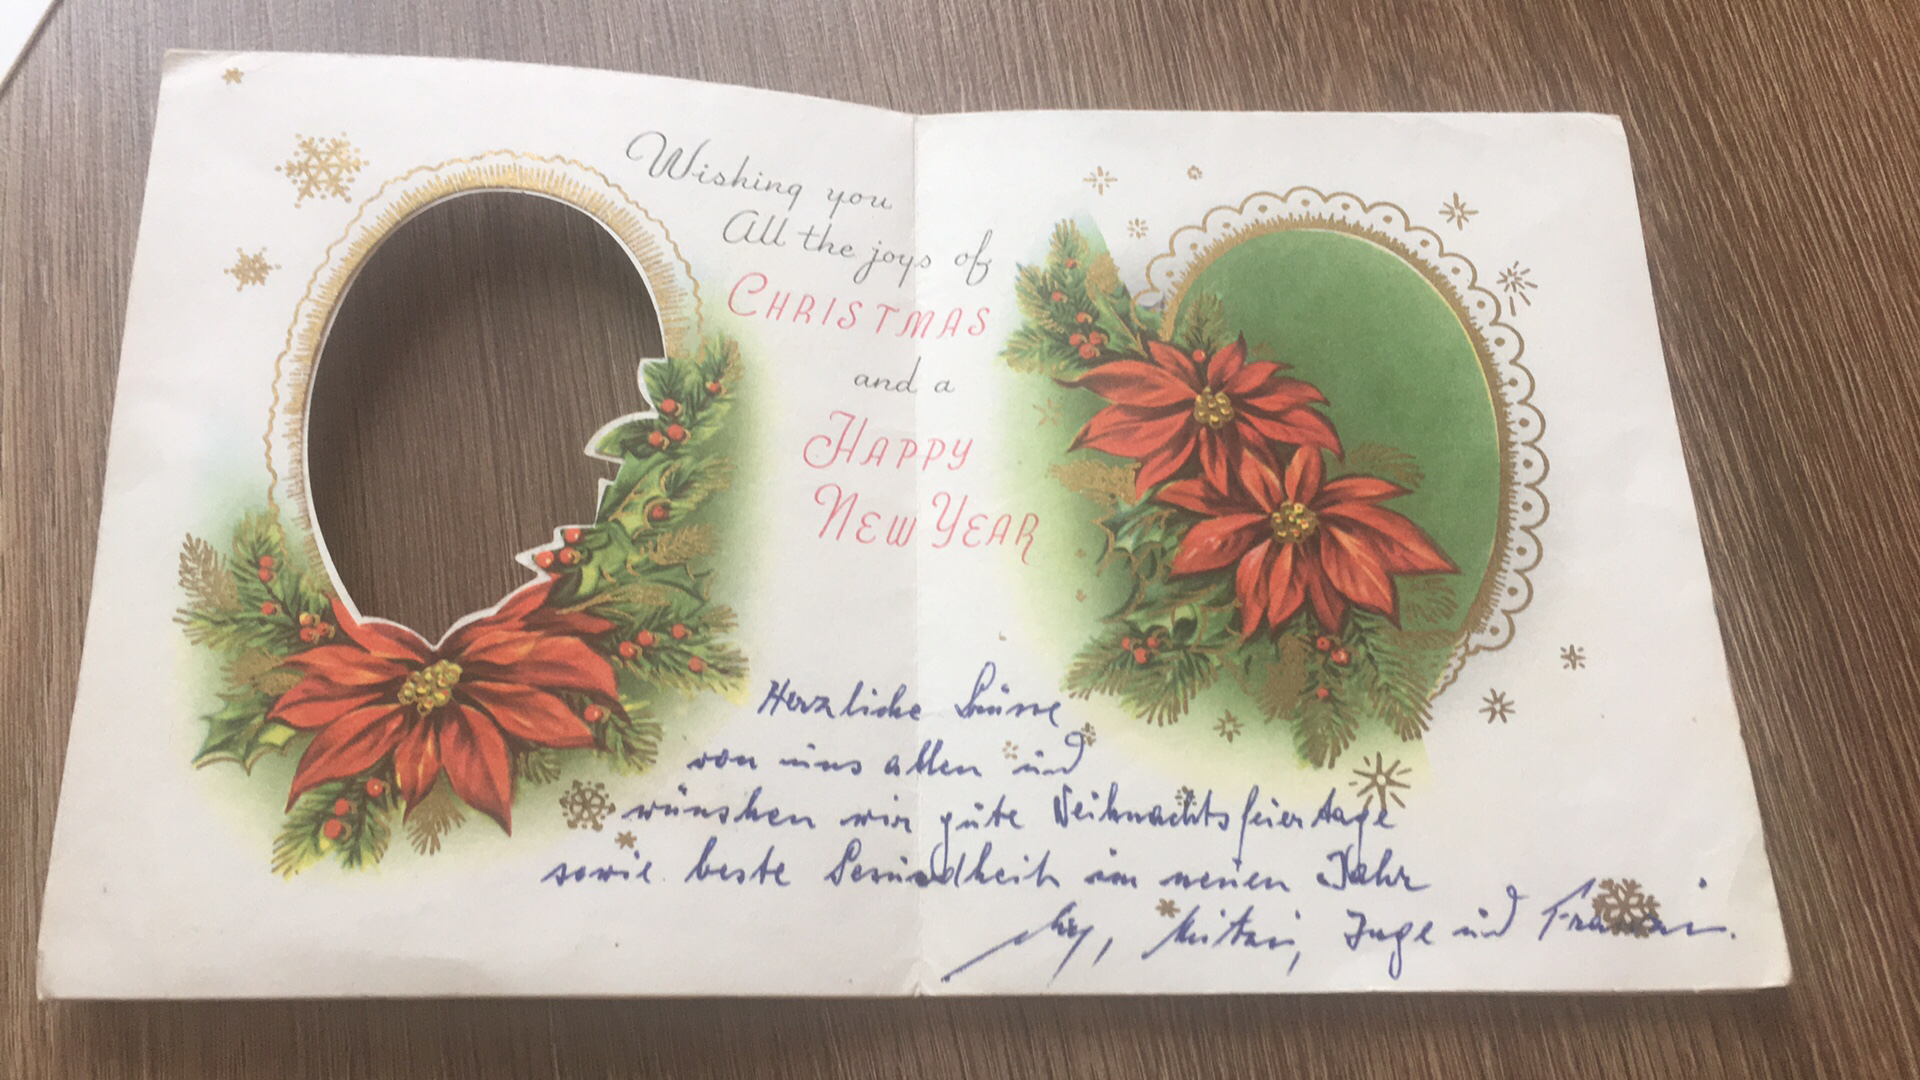 Wishing you
All the joys of
CHRISTMAS
and a
HAPPY
NEW YEAR
Herzliche Grüsse
von uns allen und
wünschen wir gute Weihnachtsfeiertage
sowie beste Gesundheit im neuen Jahr
Inge und